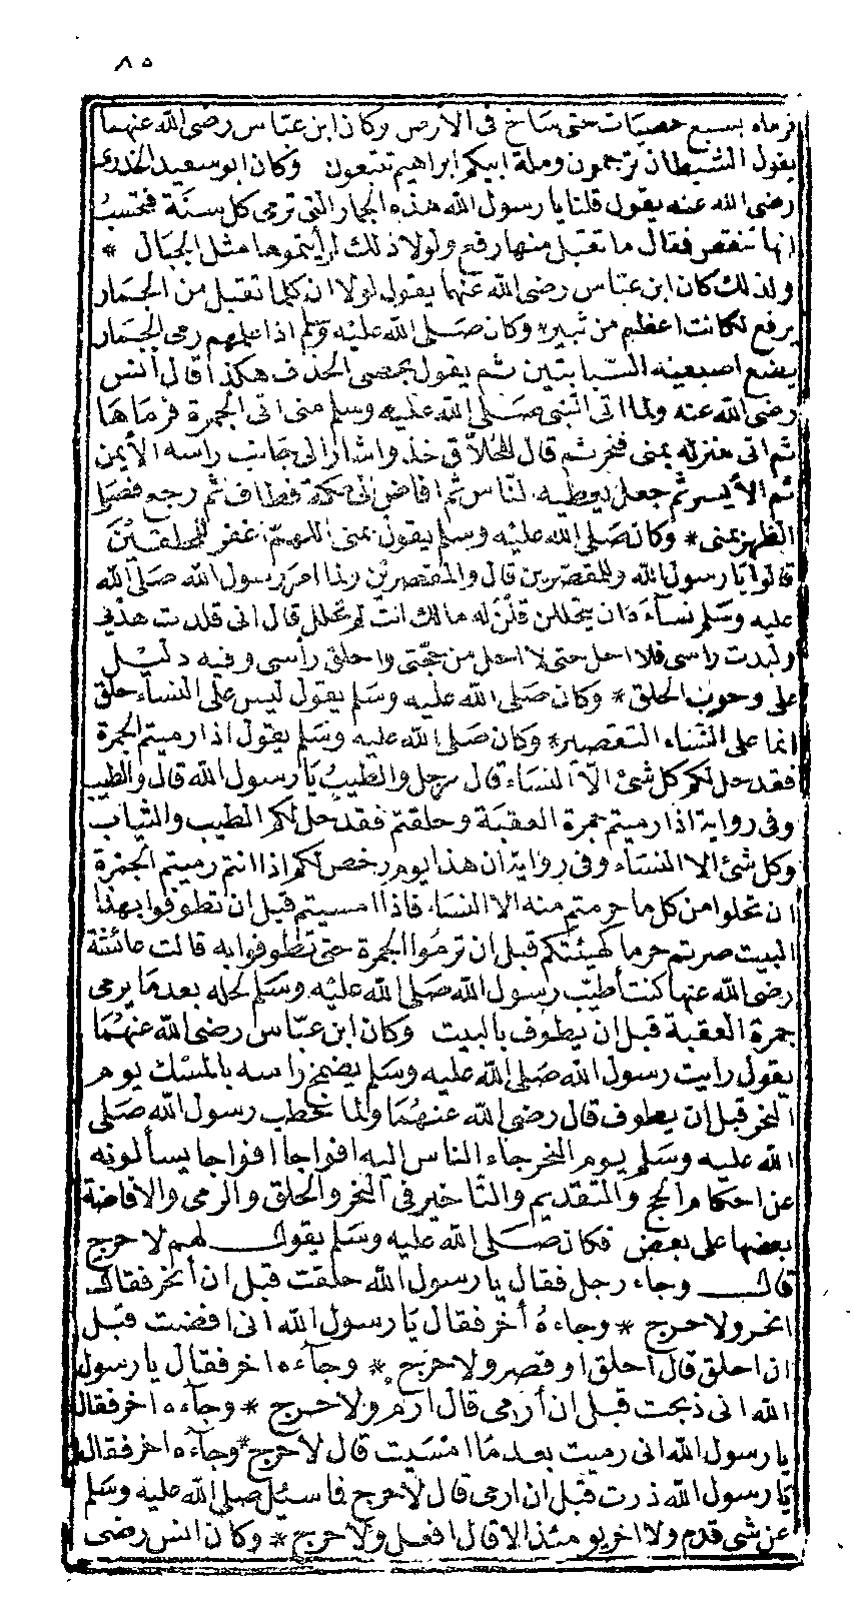 ٨٥
فرماه بسبع حصيات حتى ساخ فى الارض وكان ابن عباس رضى الله عنهما
يقول الشيطان ترجمون وملة ابيكم ابراهيم تتبعون وكان ابو سعيد الخدرى
رضى الله عنه يقول قلنا يا رسول الله هذه الجمار التى ترمى كل سنة فنحتسب
انها تنقص فقال ما تقبل منها رفع ولولا ذلك لرأيتموها مثل الجبال *
ولذلك كان ابن عباس رضى الله عنهما يقول لولا ان كلما تقبل من الجمار
يرفع لكانت اعظم من ثبير* وكان صلى الله عليه وسلم اذا علمهم رمى الجمار
يضع اصبعيه السبابتين ثم يقول بحصى الخذف هكذا قال انس
رضى الله عنه ولما اتى النبى صلى الله عليه وسلم منى اتى الجمرة فرماها
ثم اتى منزله بمنى فنحر ثم قال للحلاق خذ واشار الى جانب راسه الأيمن
ثم الأيسر ثم جعل يعطيه لناس ثم افاض الى مكة فطاف ثم رجع فصلى
الظهر بمنى * وكان صلى الله عليه وسلم يقول بمنى اللهم اغفر للمحلقين
قالوا يا رسول الله وللمقصرين قال والمقصرين ولما امر رسول الله صلى الله
عليه وسلم نسآءه ان يحللن قلن له مالك انت لم تحلل قال انى قلدت هديى
ولبدت راسى فلا احل حتى لا احل من حجتى واحلق رأسى وفيه دليل
على وجوب الحلق * وكان صلى الله عليه وسلم يقول ليس على النساء حلق
انما على النساء التقصير* وكان صلى الله عليه وسلم يقول اذا رميتم الجمرة
فقد حل لكم كل شئ الا النساء قال رجل والطيب يا رسول الله قال والطيب
وفى رواية اذا رميتم جمرة العقبة وحلقتم فقد حل لكم الطيب والثياب
وكل شئ الا النساء وفى رواية ان هذا يوم رخص لكم اذا انتم رميتم الجمرة
ان تحلوا من كل ما حرمتم منه الا النساء فاذا امسيتم قبل ان تطوفوا بهذا
البيت صرتم حرما كهيئتكم قبل ان ترموا الجمرة حتى تطوفوا به قالت عائشة
رضى الله عنها كنت أطيب رسول الله صلى الله عليه وسلم لحله بعد ما يرمى
جمرة العقبة قبل ان يطوف بالبيت وكان ابن عباس رضى الله عنهما
يقول رايت رسول الله صلى الله عليه وسلم يضمخ راسه بالمسك يوم
النحر قبل ان يطوف قال رضى الله عنهما ولما خطب رسول الله صلى
الله عليه وسلم يوم النحر جاء الناس اليه افواجا افواجا يسألونه
عن احكام الحج والتقديم والتأخير فى النحر والحلق والرمى والافاضة
بعضها على بعض فكان صلى الله عليه وسلم يقول لهم لا حرج
قال وجاء رجل فقال يا رسول الله حلقت قبل ان أنحر فقال
انحر ولا حرج * وجاءه أخر فقال يا رسول الله انى افضت قبل
ان احلق قال احلق او قصر ولا حرج * وجآءه اخر فقال يا رسول
الله انى ذبحت قبل ان أرمى قال ارم ولا حرج * وجآءه اخر فقال
يا رسول الله انى رميت بعد ما امسيت قال لا حرج * وجآءه اخر فقال
يا رسول الله زرت قبل ان ارمى قال لا حرج فما سئل صلى الله عليه وسلم
عن شى قدم ولا اخر يومئذ الا قال افعل ولا حرج * وكان انس رضى